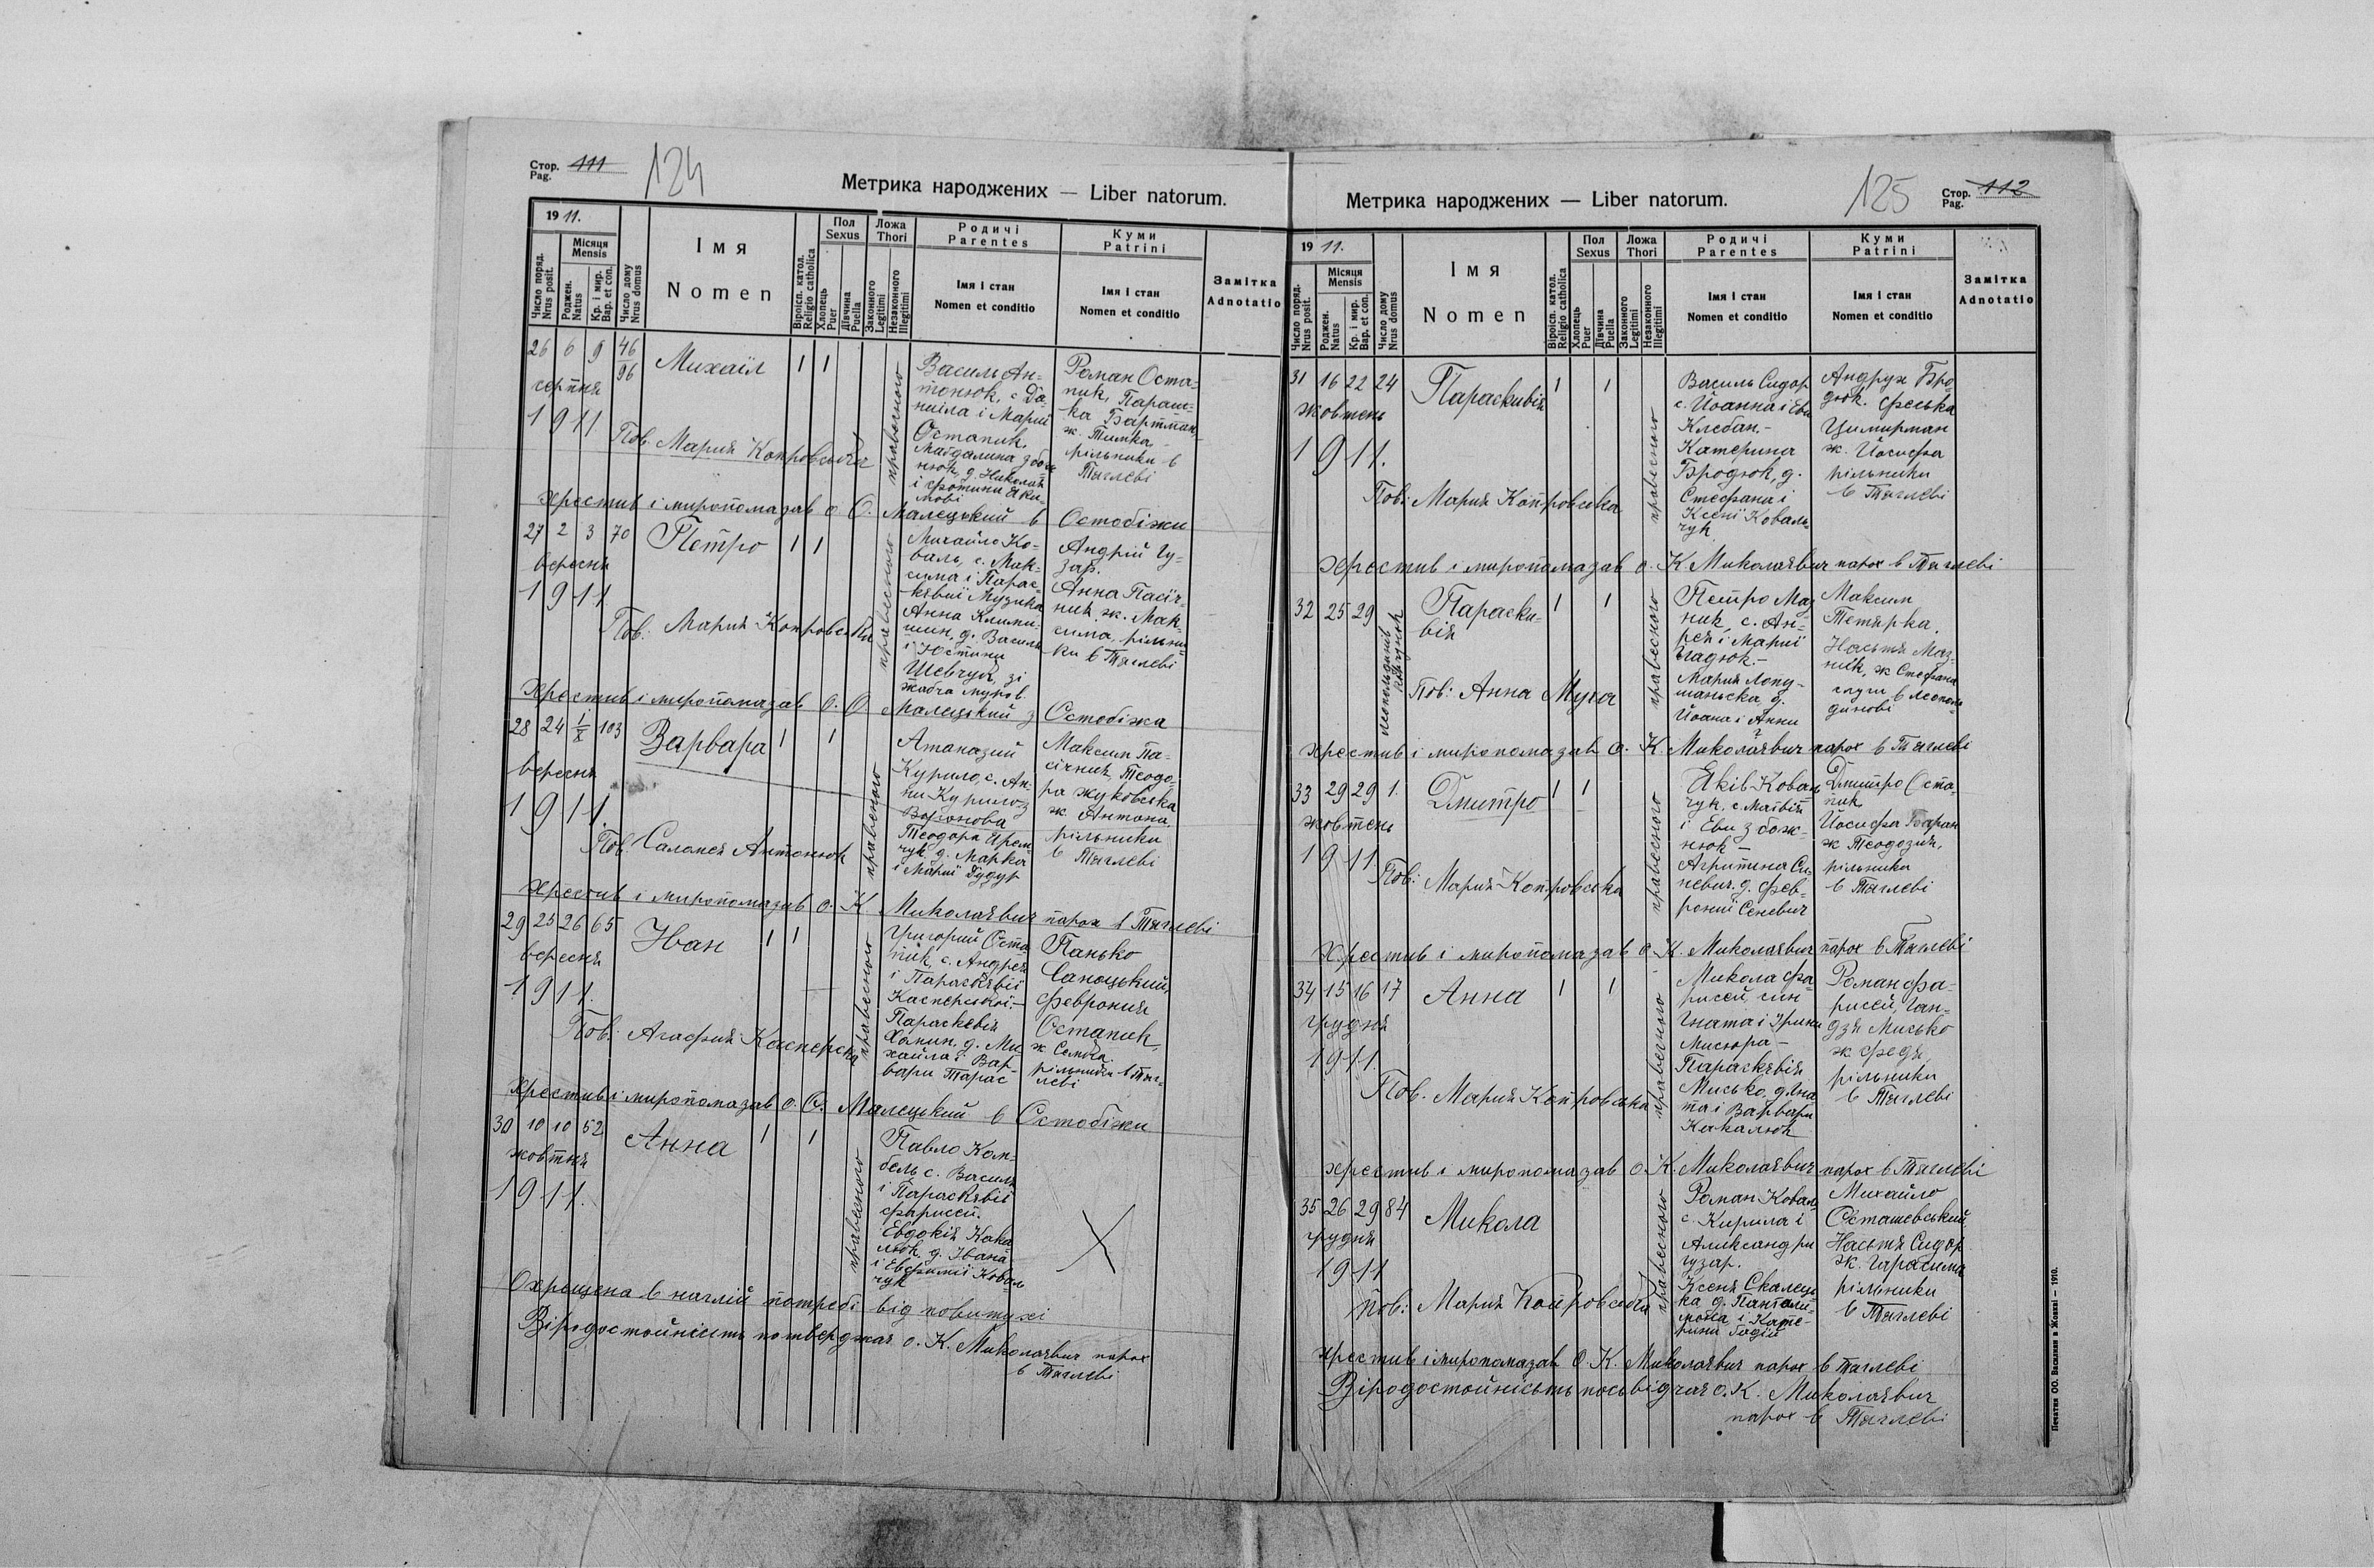 Стор. 111
Pag.
124
Метрика народжених — Liber natorum.
19 11.
Число поряд.
Nrus posit.
Місяця
Mensis
Роджен.
Natus
Кр. і мир.
Bap. et con.
Число дому
Nrus domus
Імя
Nomen
Віроісп. катол.
Religio catholica
Пол
Sexus
Хлопець
Puer
Дівчина
Puella
Ложа
Thori
Законного
Legitimi
Незаконного
Illegitimi
Родичі
Parentes
Імя і стан
Nomen et conditio
Куми
Patrini
Імя і стан
Nomen et conditio
Замітка
Adnotatio
26 6 9 46/96 Михаіл 1 1
серпня
1911
правесного
Василь Ан-
тонюк, с. Да-
ниіла і Мариї
Остапик,
Магдалина Збож-
нюк, д. Николая
і Фотини Яки-
мові
Роман Оста-
пик, Параш-
ка Бартман
ж. Тимка
рільники в
Тяглеві
Пов. Мария Копровська
хрестив і миропомазав о. О. Малецький в Остобіжи
27 2 3 70 Петро 1 1
вересня
1911
правесного
Михайло Ко-
валь, с. Мак-
сима і Парас-
кевиї Музика
Анна Клими-
шин, д. Василя
і Юстини
Шевчук, зі
Андрій Гу-
зар.
Анна Пасіч-
ник ж. Мак-
сима рільни-
ки в Тяглеві
Пов: Мария Копровська
Хрестив і миропомазав о. О. Малецький з Остобіжа
28 24 1/X 103 Варвара 1 1
вересня
1911.
правесного
Атаназий
Курило, с. Ан-
ни Курило з
Воронова
Теодора Ярем-
чук д. Марка
і Мариї Дудур
Максим Па-
січник, Теодо-
ра Жуковська
ж. Антона,
рільники
в Тяглеві
Пов. Саломея Антонюк
Хрестив і миропомазав о. К. Миколаявич парох в Тяглеві
29 25 26 65 Іван 1 1
вересня
1911.
правесного
Григорий Оста-
пик, с. Андрея
і Параскевиї
Касперської.-
Параскевія
Хомин, д. Ми-
хайла і Вар-
вари Тарас
Панько
Саноцький,
Феврония
Остапик,
ж Семка.
рільники в Тяг-
леві
Пов: Агафия Касперська
Хрестив і миропомазав о. О. Малецький в Остобіжи
30 10 10 52 Анна 1 1
жовтня
1911.
правесного
Павло Кон-
бель с. Василя
і Параскевиї
Фарисей.
Евдокія Кака-
люк д. Івана
і Евфимиї Коваль-
чук
Охрещена в наглій потребі від повитухі
Віродостойність потверджая о. К. Миколаявич парох
в Тяглеві
Метрика народжених — Liber natorum.
125
Стор. 112
Pag.
19 11.
Число поряд.
Nrus posit.
Місяця
Mensis
Роджен.
Natus
Кр. і мир.
Bap. et con.
Число дому
Nrus domus
Імя
Nomen
Віроісп. катол.
Religio catholica
Пол
Sexus
Хлопець
Puer
Дівчина
Puella
Ложа
Thori
Законного
Legitimi
Незаконного
Illegitimi
Родичі
Parentes
Імя і стан
Nomen et conditio
Куми
Patrini
Імя і стан
Nomen et conditio
Замітка
Adnotatio
31 16 22 24 Параскивія 1 1
жовтень
1911.
правесного
Василь Сидор
с. Йоанна і Еви
Клебан.-
Катерина
Бродюк, д.
Стефана і
Ксенї Коваль-
чук
Андрух Бро-
дюк. Феська
Цимирман
ж. Йосифа
рільники
в Тяглеві
Пов: Мария Копровська
хрестив і миропомазав о. К. Миколаявич парох в Тяглеві
32 25 29 Параски-
вія 1 1
правесного
Петро Маз-
ник, с. Ан-
рея і Мариї
Гладюк.-
Мария Лопу-
шаньска, д.
Йоана і Анни
Максим
Тетярка.
Настя Маз-
ник, ж Стефана
слуги в Леополь-
динові
Пов: Анна Муха
хрестив і миропомазав о. К. Миколаявич парох в Тяглеві
33 29 29 1. Дмитро 1 1
жовтень
1911.
правесного
Яків Коваль-
чук, с. Матвія
і Еви Збож-
нюк -
Агрипина Си-
невич, д. Фев-
рониї Сеневич
Дмитро Оста-
пик
Йосифа Баран
ж Теодозия,
рільники
в Тяглеві
Пов: Мария Копровська
Хрестив і миропомазав о. К. Миколаявич парох в Тяглеві
34 15 16 17 Анна 1 1
грудня
1911.
правесного
Микола Фа-
рисей, син
Гната і Ірини
Мисюра -
Параскевія
Мисько, д. Гна-
та і Варвари
Какалюк
Роман Фа-
рисей, Ган-
дзя Мисько
ж Федя,
рільники
в Тяглеві
Пов. Мария Копровська
хрестив і миропомазав о. К. Миколаявич парох в Тяглеві
35 26 29 84 Микола
грудня
1911
правесного
Роман Коваль
с. Кирила і
Александри
Гузар.
Ксеня Скалець-
ка д. Пантали-
мона і Кате-
рини Гадій
Михайло
Осташевський
Настя Сидор
ж. Гарасима
рільники
в Тяглеві
Пов: Мария Копровська
хрестив і миропомазав о. К. Миколаявич парох в Тяглеві
Віродостойність посьвідчая о. К. Миколаявич
парох в Тяглеві
Печатня ОО. Василиян в Жовкві — 1910.